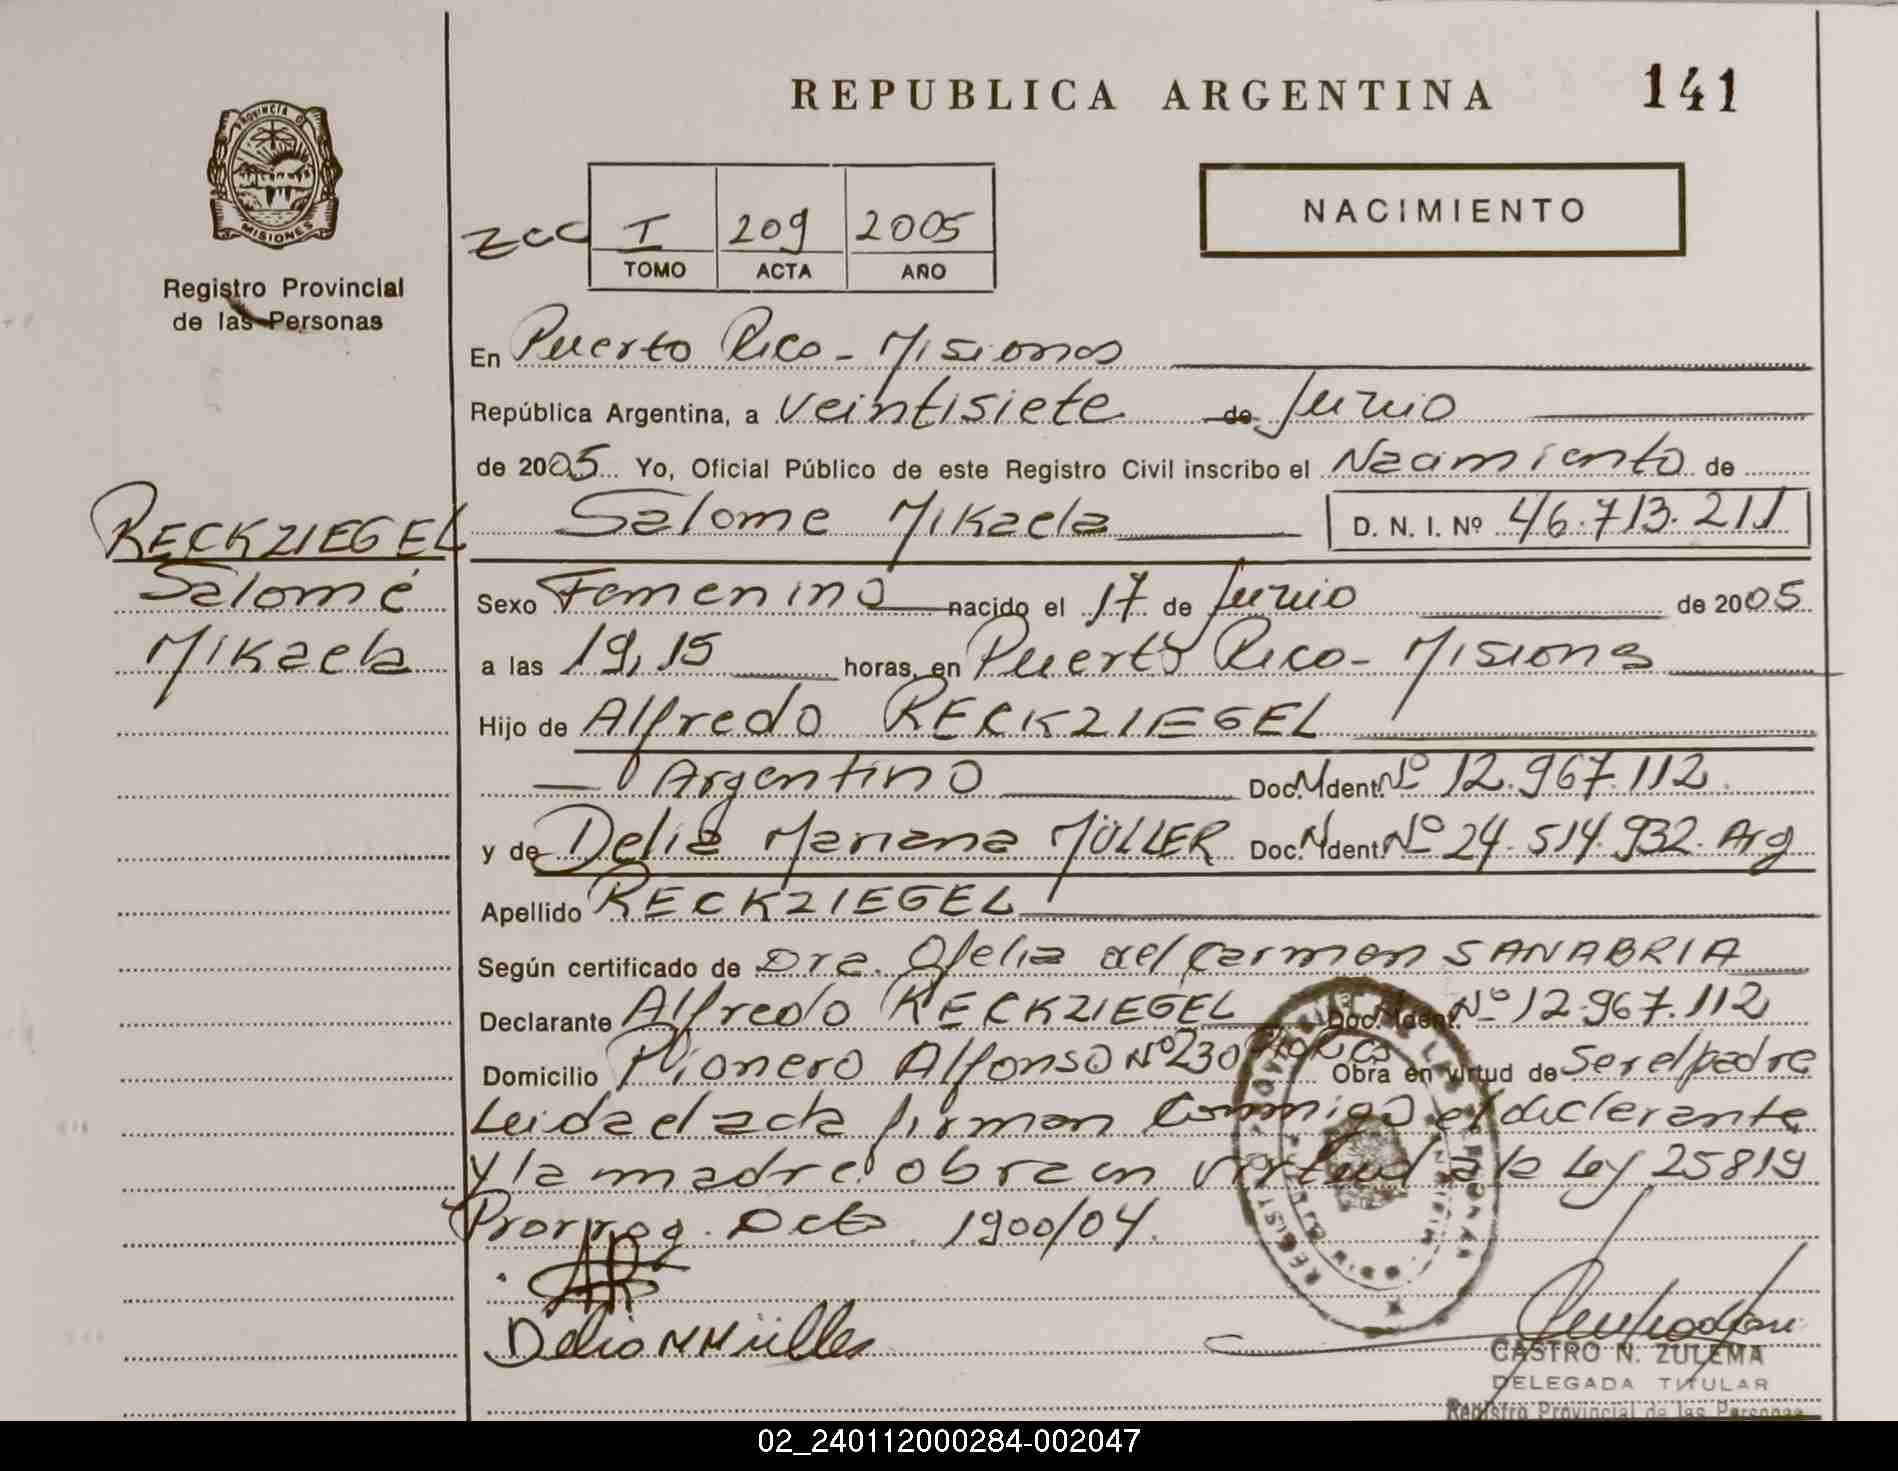 REPUBLICA ARGENTINA
141
PROVINCIA DE
MISIONES
Registro Provincial
de las Personas
NACIMIENTO
I 209 2005
TOMO ACTA AÑO
En Puerto Rico - Misiones
República Argentina, a veintisiete de Junio
de 2005 Yo, Oficial Público de este Registro Civil inscribo el Nacimiento de
Salome Mikaela D. N. I. Nº 46.713.211
RECKZIEGEL
Salomé
Mikaela
Sexo Femenino nacido el 17 de Junio de 2005
a las 19,15 horas, en Puerto Rico - Misiones
Hijo de Alfredo RECKZIEGEL
Argentino Doc. Ident. Nº 12.967.112
y de Delia Mariana MÜLLER Doc. Ident. Nº 24.514.932. Arg
Apellido RECKZIEGEL
Según certificado de Dra. Ofelia del Carmen SANABRIA
Declarante Alfredo RECKZIEGEL Doc. Ident. Nº 12.967.112
Domicilio Pionero Alfonso Nº 230 Obra en virtud de Ser el padre
Leida el acta firman Conmigo el declarante
y la madre obra en virtud a la Ley 25819
Prorrog. Dcto. 1900/04.
Delia M Müller
CASTRO N. ZULEMA
DELEGADA TITULAR
Registro Provincial de las Personas
02_240112000284-002047